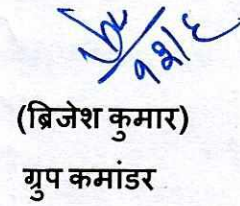 १२/६
(ब्रिजेश कुमार)
ग्रुप कमांडर